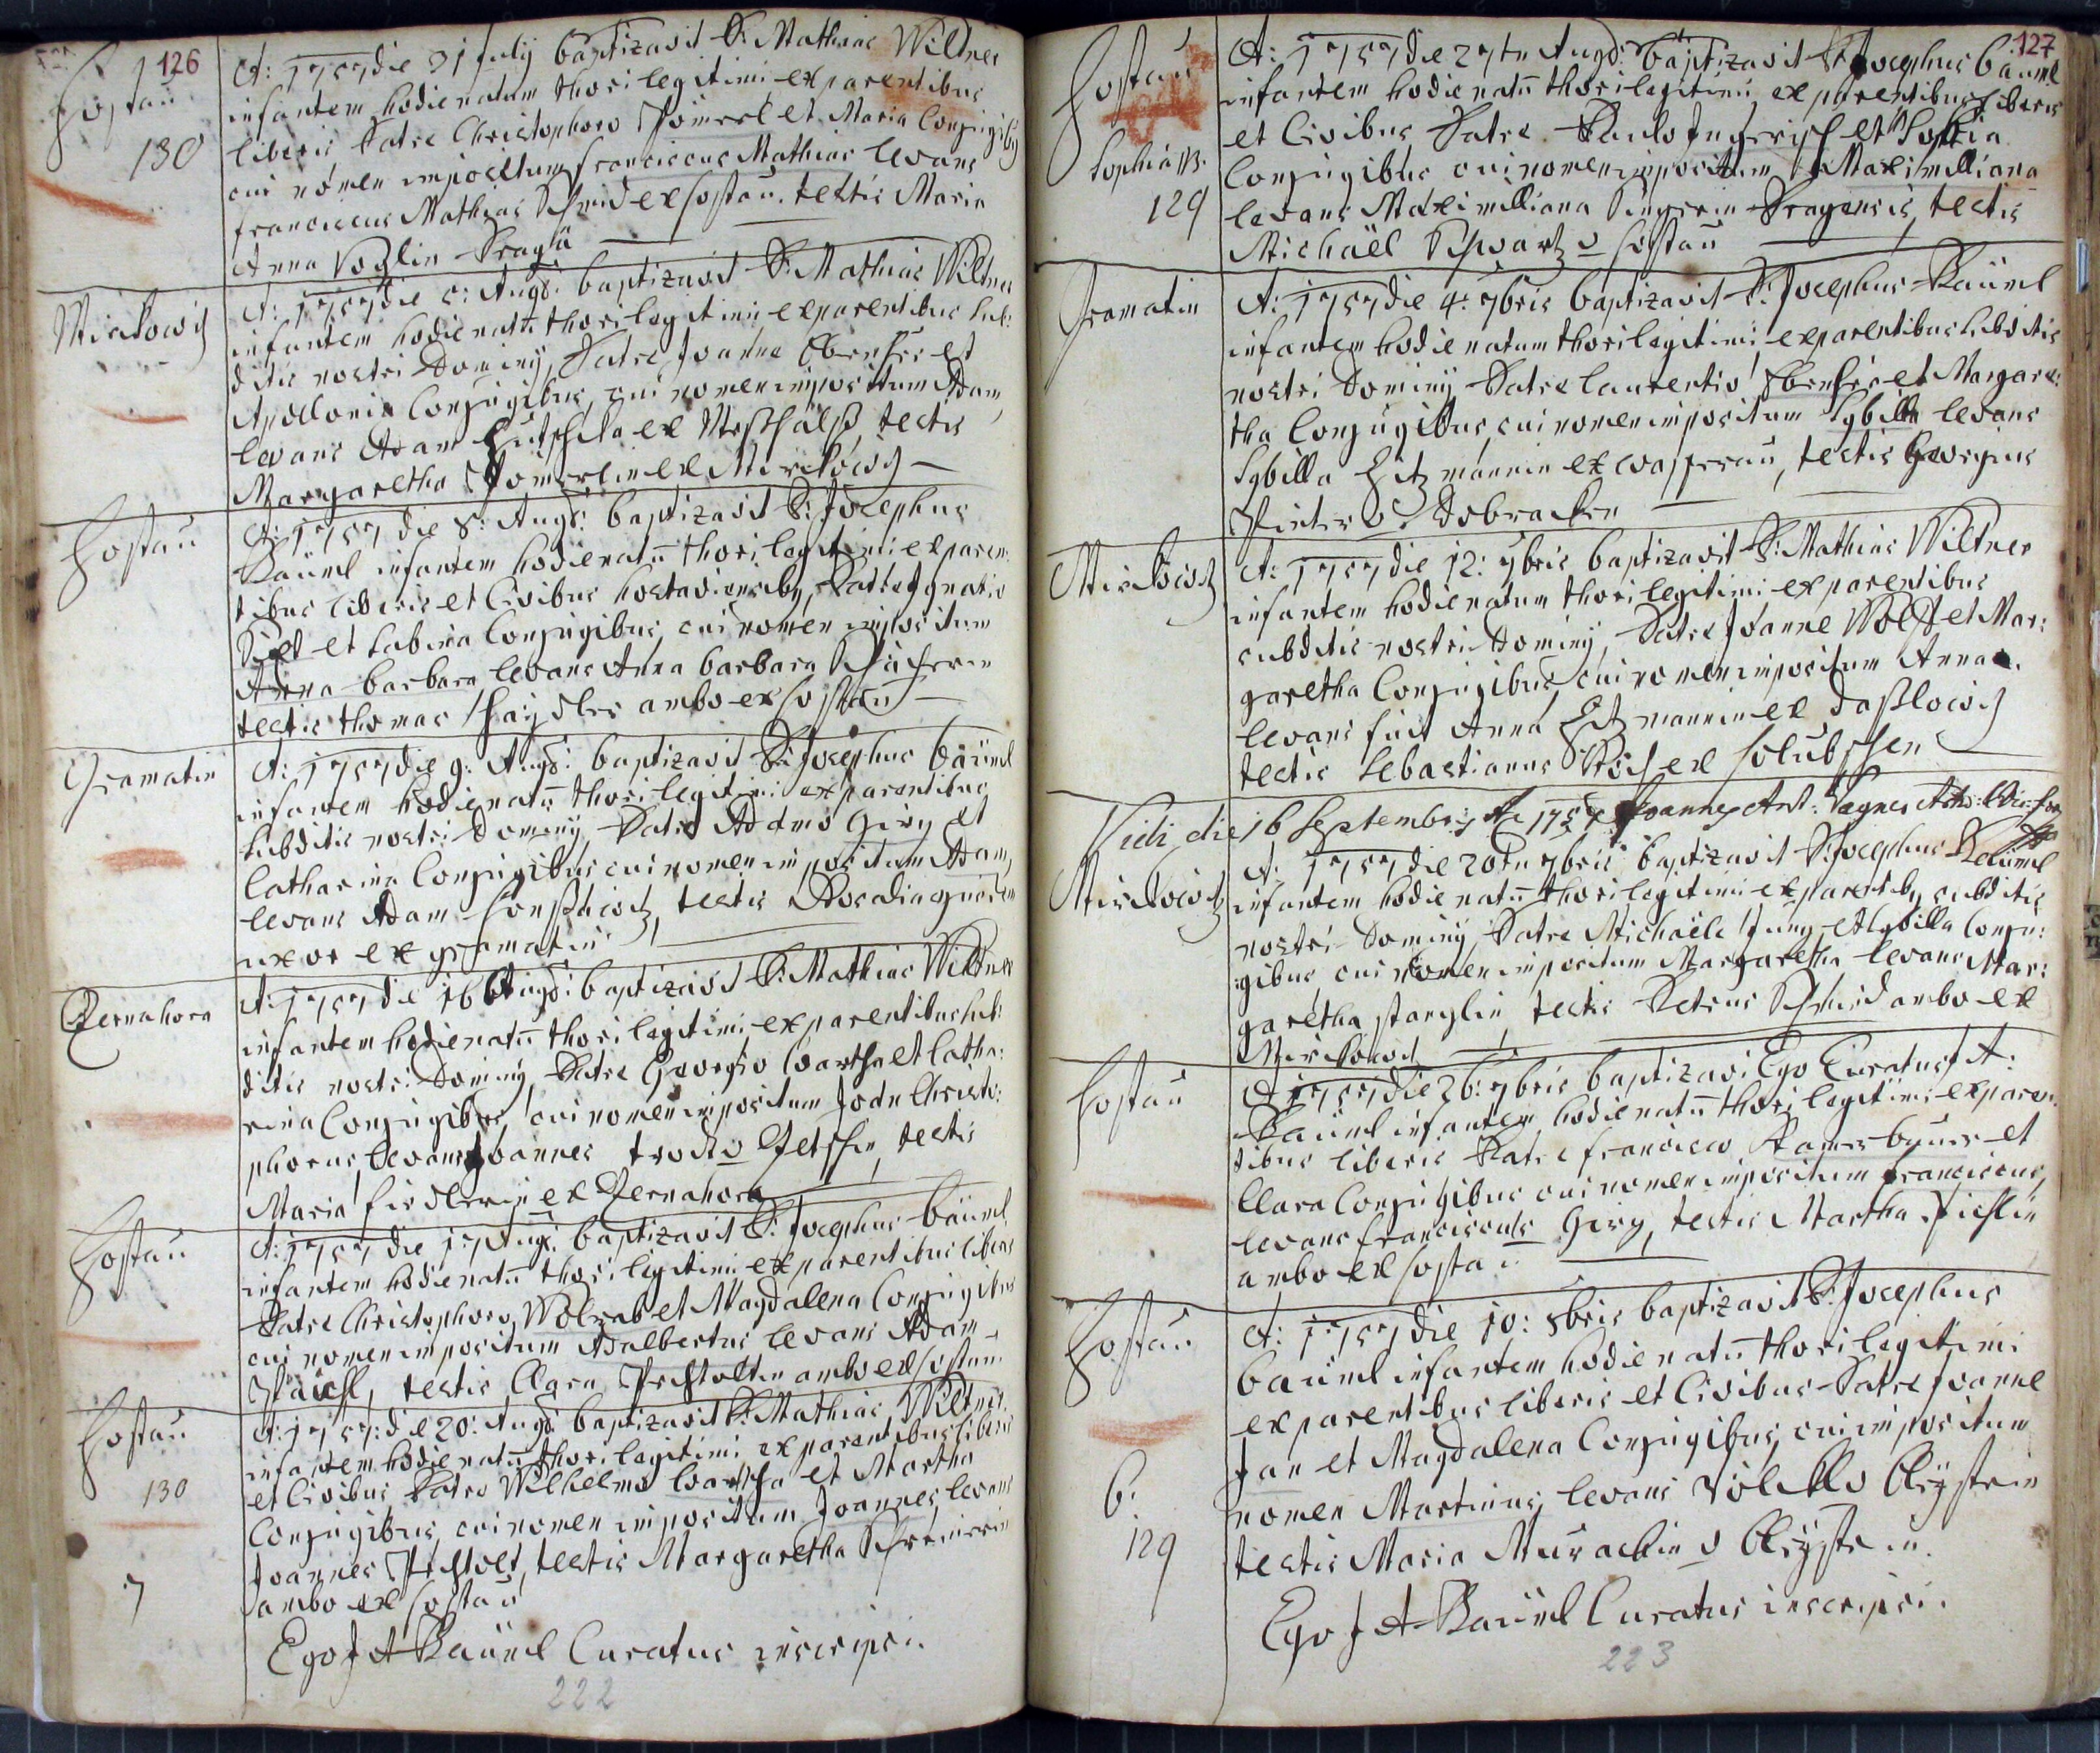 126
Hostau
130
A: 1757 die 31 July baptizavit P: Mathias Wiltner
infantem hodie natum thori legitimi ex parentibus
liberis Patre Christophoro et Maria Conjugibg
cui nomen impositum Franciscus Mathias levans
Franciscus Mathias Schmid ex Hostau. testis Maria
Anna Voglin Pragâ
Mirkowitz
A: 1757 die 5: Augs: baptizavit P: Mathias Wiltner
infantem hodie natum thori legitimi ex parentibus sub:
ditis nostri Dominÿ, Patre Joanne et
Apollonia Conjugibus, cui nomen impositum Adam,
levans Adam ex testis
Margaretha ex Mirkowitz
Hostau
A: 1757 die 8: Augs: baptizavit P: Josephus
Baüml infantem hodie natũ thori legitimi ex paren:
tibus liberis et Civibus hostaviensibg, Patre Ignatio
et Sabina Conjugibus, cui nomen impositum
Anna Barbara levans Anna Barbara
testis Thomas ambo ex Hostau
Gramatin
A: 1757 die 9: Augs: baptizavit P: Josephus Baüml
infantem hodie natũ thori legitimi ex parentibus
Subditis nostri Dominÿ, Patre Adamo Girg et
Catharina Conjugibus cui nomen impositum Adam,
levans Adam testis Rosalia
uxor ex gramatin
Zernahora
A: 1757 die 16 Augs: baptizavit P: Mathias Wiltner
infantem hodie natũ thori legitimi ex parentibus sub:
ditis nostri Dominÿ, Patre Georgio Bartha et Catha:
rina Conjugibus, cui nomen impositum Joan Christo:
phorus, levans Joannes testis
Maria ex Zernahora
Hostau
A: 1757 die 17 Aug: baptizavit P: Josephus Baüml
infantem hodie natũ thori legitimi ex parentibus liberis
Patre Christophoro Wolrab et Magdalena Conjugibus
cui nomen impositum Adalbertus levans Adam
testis Clara ambo ex Hostau
Hostau
130
7
A: 1757: die 20: Augs: baptizavit P: Mathias Wiltner
infantem hodie natũ thori legitimi ex parentibus liberis
et Civibus Patre Wilhelmo Bartha et Martha
Conjugibus, cui nomen impositum Joannes, levans
Joannes testis Margaretha Schreinerin
ambo ex Hostau
Ego J A Baüml Curatus inscripsi.
222
127
Hostau
Sophia
129
A: 1757 die 27tn Augs: baptizavit P: Josephus Baüml
infantem hodie natũ thori legitimi ex parentibus liberis
et Civibus Patre Paulo et Sophia
Conjugibus cui nomen impositum Maximilliana
levans Maximilliana Pragensis, testis
Michäel Schwartz v Hostau
Gramatin
A: 1757 die 4: 7bris baptizavit P: Josephus Baüml
infantem hodie natum thori legitimi ex parentibus subditis
nostri Dominÿ Patre Laurentio et Margare:
tha Conjugibus, cui nomen impositum Sybilla levans
Sybilla Hitzmannin ex Wasserau, testis Georgius
v. Dobracken
Mirkowitz
A: 1757 die 12: 7bris baptizavit P: Mathias Wiltner
infantem hodie natum thori legitimi ex parentibus
subditis nostri Dominÿ, Patre Joanne Wolf et Mar:
garetha Conjugibus, cui nomen impositum Anna.
levans fuit Anna Hitzmannin ex Daßlowitz
testis Sebastianus ex Holubschen
Vidi die 16 Septembris Ao 1757 Joannes Ant: Wagner
Mirkowitz
A: 1757 die 20tn 7bris baptizavit P: Josephus Baüml
infantem hodie natũ thori legitimi ex parentibg subditis
nostri Dominÿ Patre Michaële Jung et Sybilla Conju:
gibus, cui nomen impositum Margaretha levans Mar:
garetha Stanglin, testis Petrus Schmid ambo ex
Mirkowitz
Hostau
A 1757 die 26: 7bris baptizavi Ego Curatus J A:
Baüml infantem hodie natũ thori legitimi ex paren:
tibus liberis Patre Francisco et
Clara Conjugibus cui nomen impositum Franciscus,
levans Franciscus Girg, testis Martha
ambo ex Hostau
Hostau
6:
129
A: 1757 die 10: 8bris baptizavit P: Josephus
Baüml infantem hodie natũ thori legitimi
ex parentibus liberis et Civibus Patre Joanne
Jan et Magdalena Conjugibus, cui impositum
nomen Martinus, levans
testis Maria
Ego J A Baüml Curatus inscripsi.
223